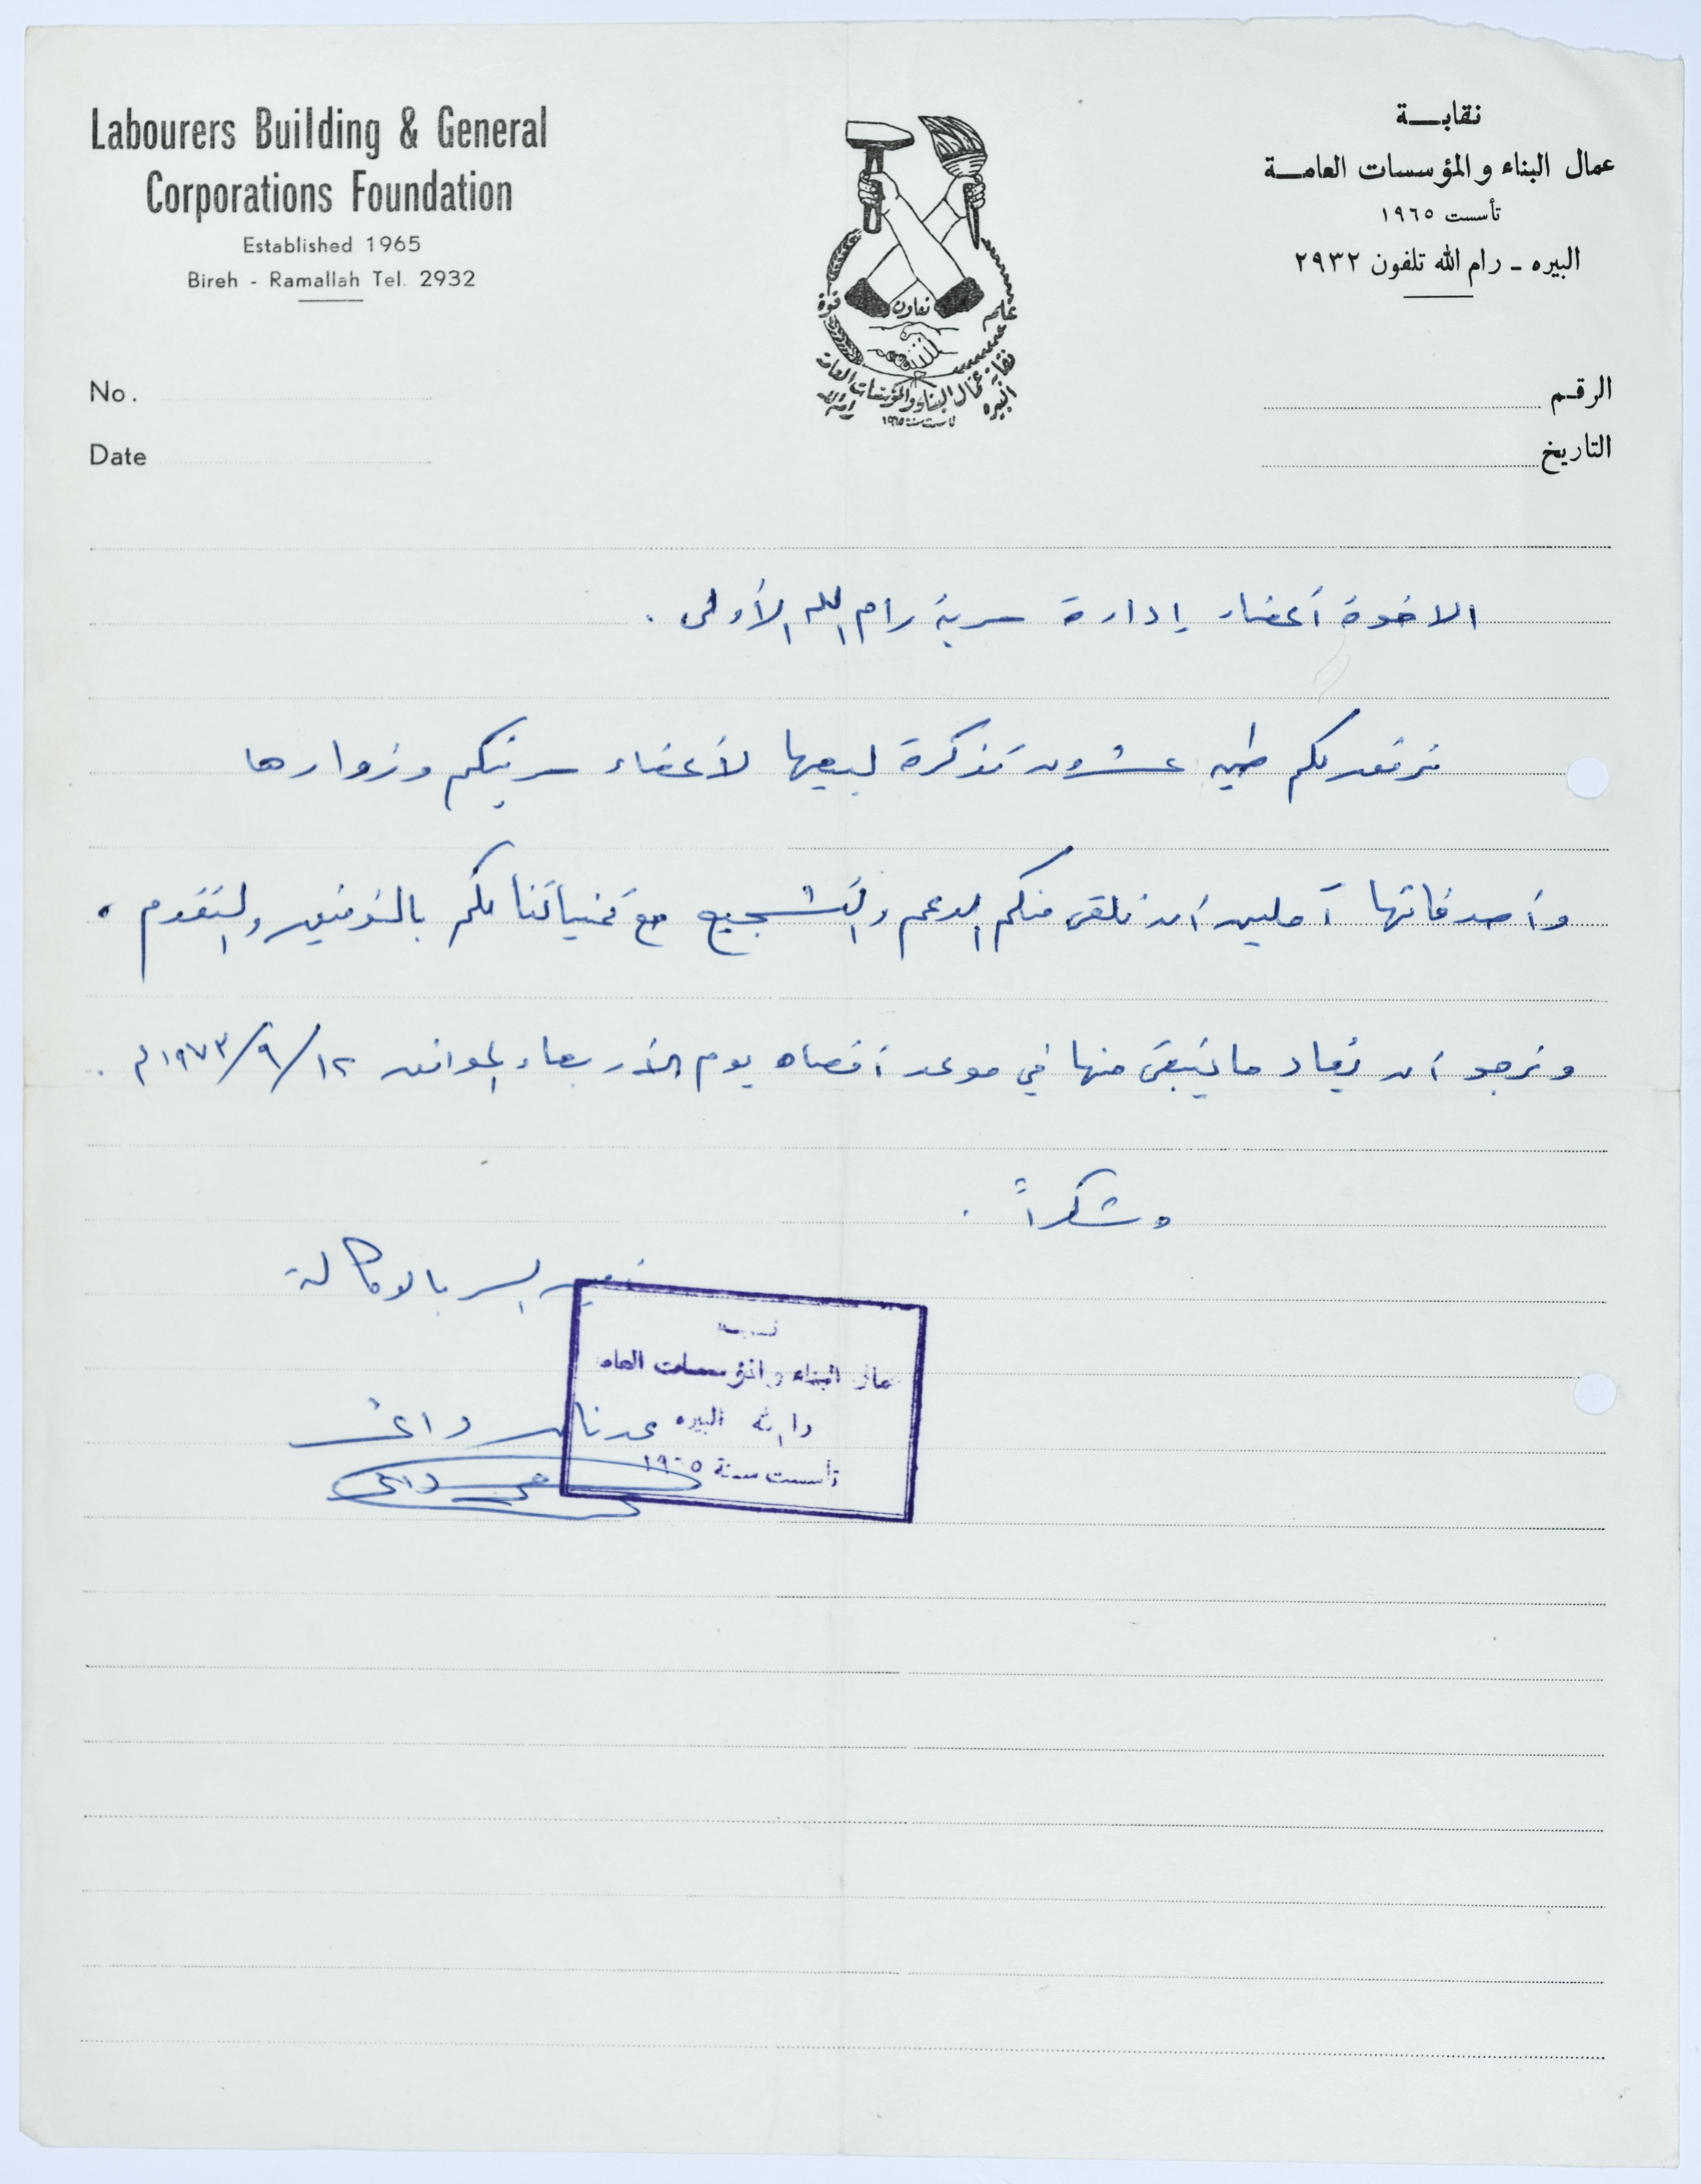 Labourers Building & General
Corporations Foundation
Established 1965
Bireh - Ramallah Tel. 2932
نقابــة
عمال البناء والمؤسسات العامــة
تأسست ١٩٦٥
البيره ـ رام الله تلفون ٢٩٣٢
قوة تعاون علم
نقابة عمال البناء والمؤسسات العامة
البيره رام الله
تأسست سنة ١٩٦٥
No.
الرقـم
Date
التاريخ
الاخوة أعضاء إدارة سرية رام الله الأولى .
نرفق لكم طيه عشرون تذكرة لبيعها لأعضاء سريتكم وزوارها
وأصدقائها آملين أن نلقى منكم الدعم والتشجيع مع تمنياتنا لكم بالتوفيق والتقدم ،
ونرجو أن يعاد ما يتبقى منها في موعد أقصاه يوم الأربعاء الموافق ١٢/٩/١٩٧٣م .
وشكراً .
السر بالوكالة
عمال البناء والمؤسسات العامه
رام الله البيره
تأسست سنة ١٩٦٥
عدنان داغر